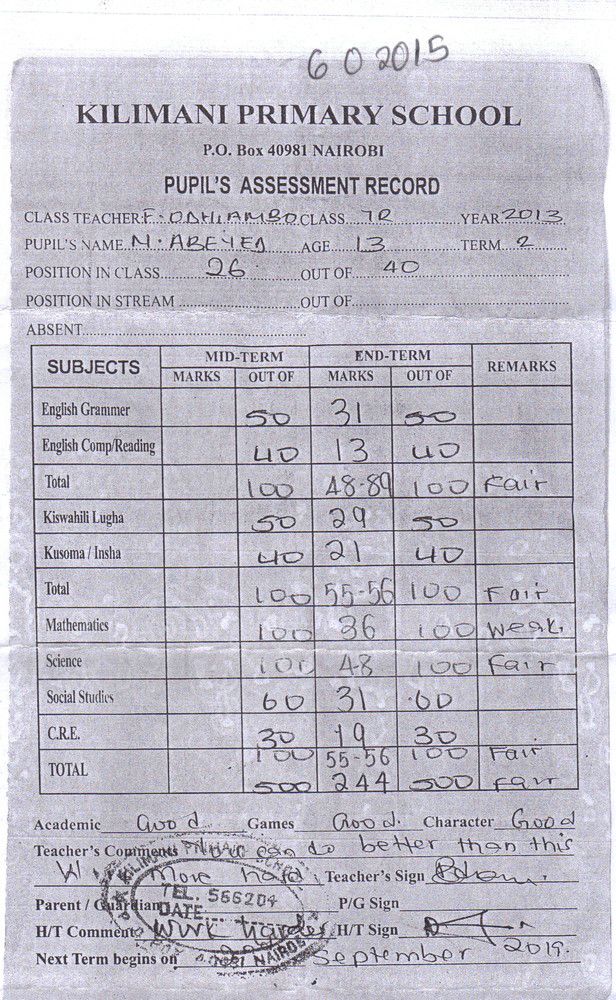 6 0 2015
KILIMANI PRIMARY SCHOOL
P.O. Box 40981 NAIROBI
PUPIL'S ASSESSMENT RECORD
CLASS TEACHER F. ODHIAMBO CLASS 7R YEAR 2013
PUPIL'S NAME M. ABEYED AGE 13 TERM 2
POSITION IN CLASS 26 OUT OF 40
POSITION IN STREAM OUT OF
ABSENT
SUBJECTS MID-TERM END-TERM REMARKS
MARKS OUT OF MARKS OUT OF
English Grammer 50 31 50
English Comp/Reading 40 13 40
Total 100 48-89 100 Fair
Kiswahili Lugha 50 29 50
Kusoma / Insha 40 21 40
Total 100 55-56 100 Fair
Mathematics 100 36 100 Weak.
Science 100 48 100 Fair
Social Studies 60 31 60
C.R.E. 30 19 30
100 55-56 100 Fair
TOTAL 500 244 500 Fair
Academic Good Games Good. Character Good
Teacher's Comments You can do better than this
W more hard Teacher's Sign
Parent / Guardian P/G Sign
TEL. 566204
DATE
H/T Comment Work harder H/T Sign
Next Term begins on September 2019.
NAIROBI